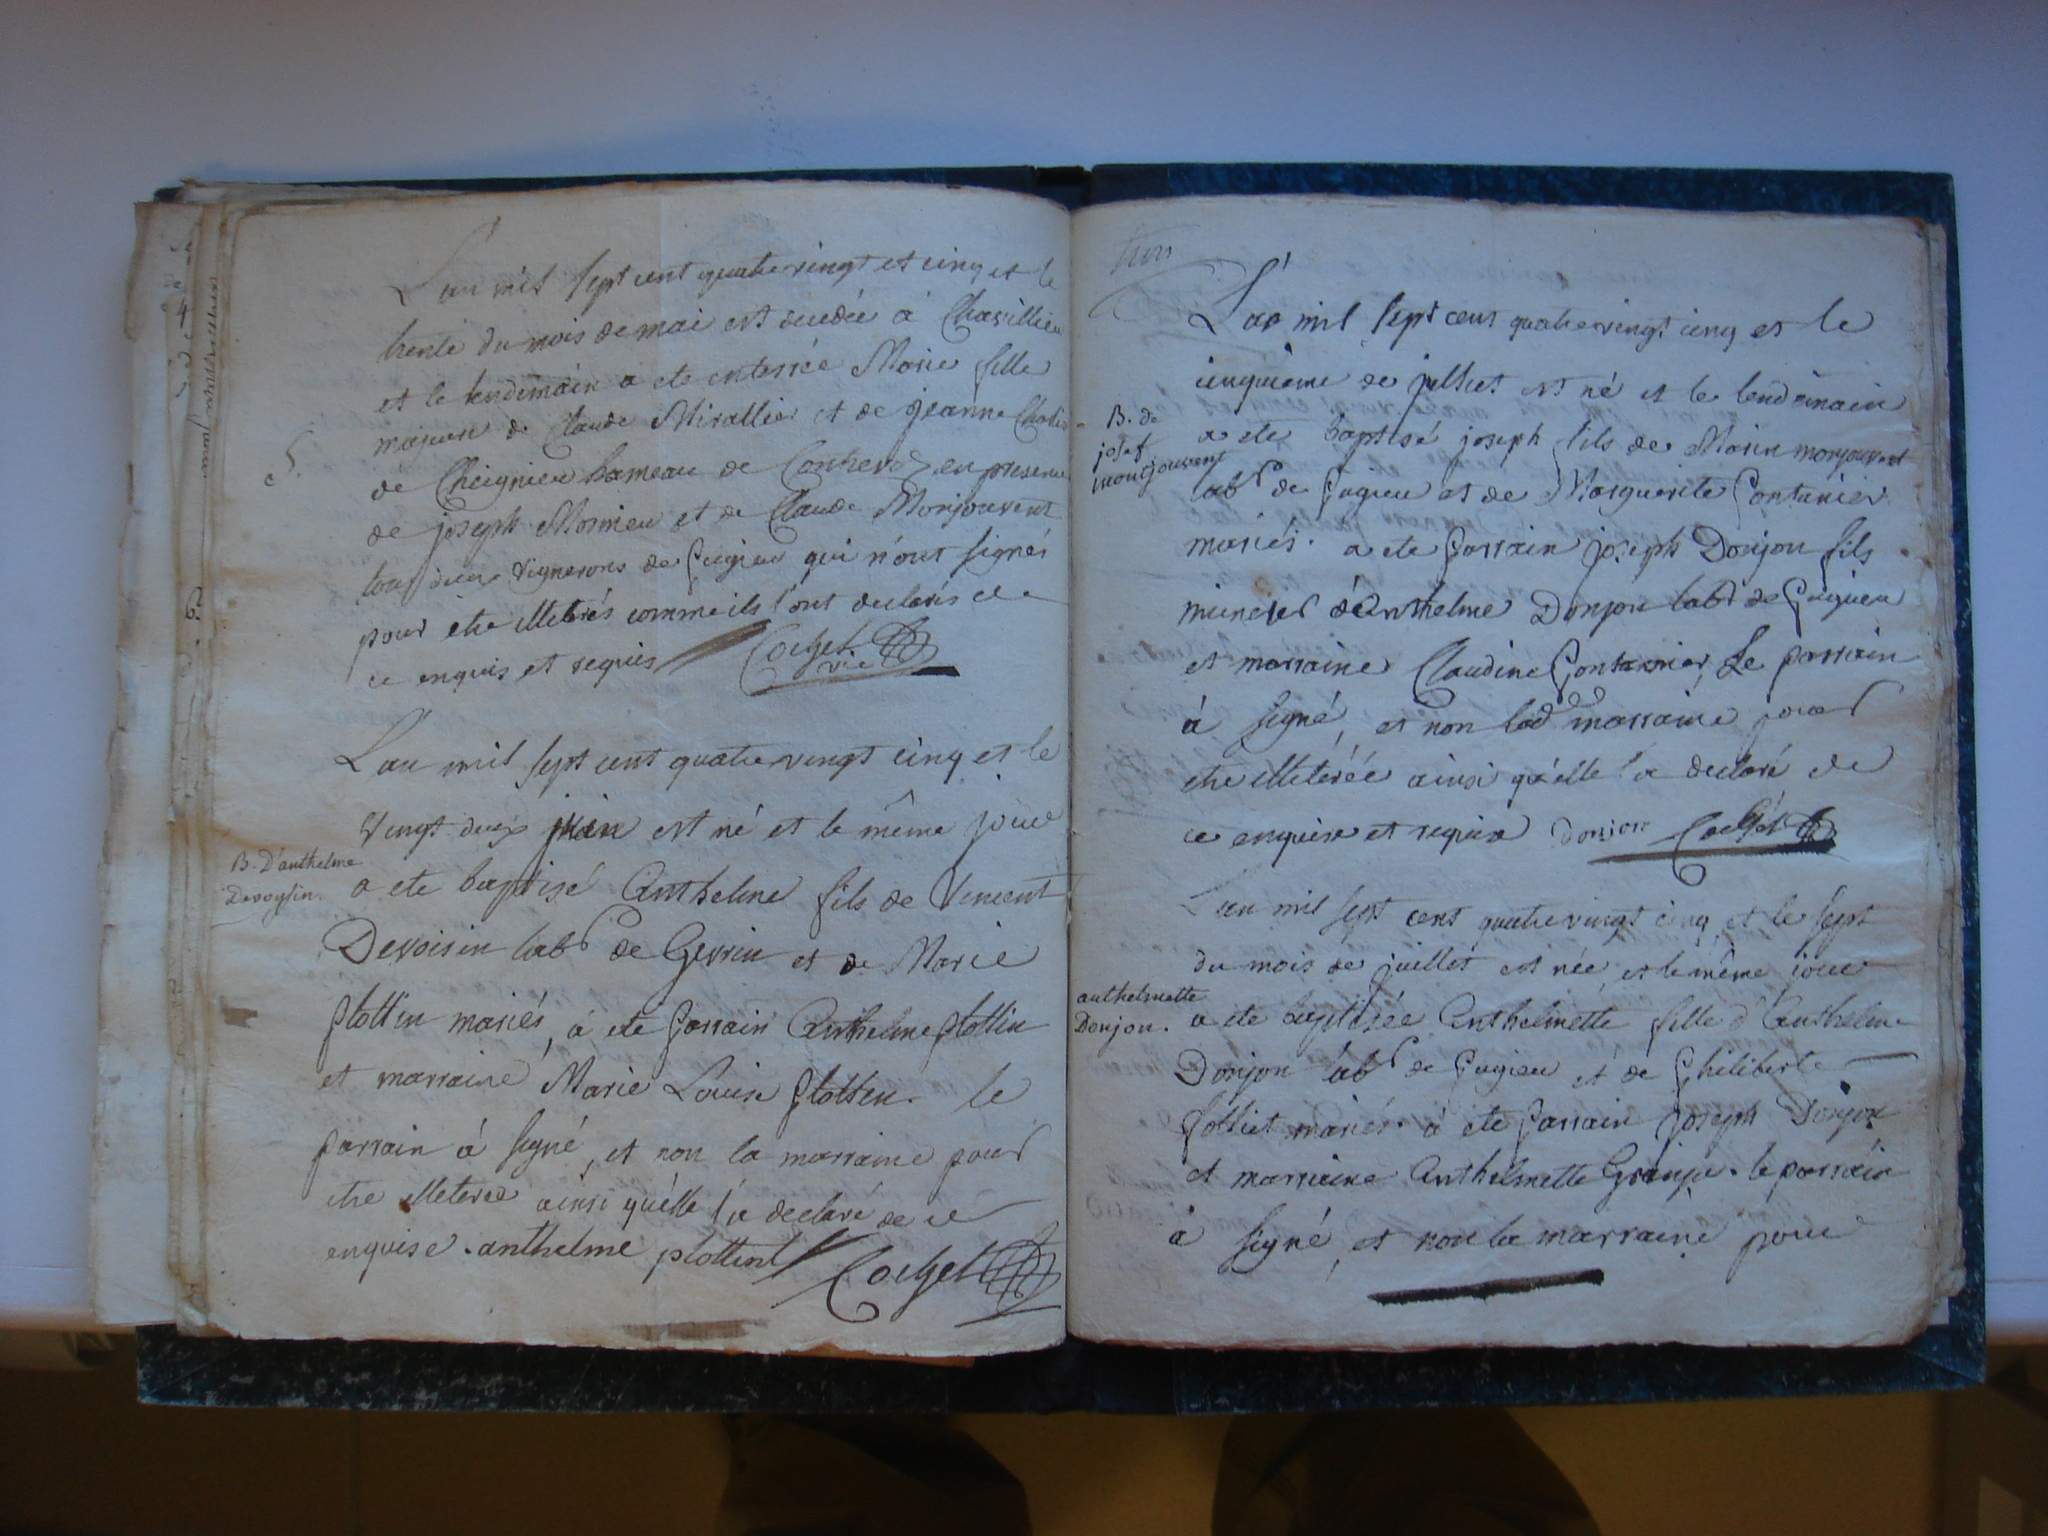 L'an mil sept cent quatrevingt et cinq et le
trente du mois de mai est decedée à Chavillieu
et le lendemain a ete enterrée Marie fille
majeure de Claude Mirallier et de jeanne
de Cheignieu hameau de en presence
de joseph et de Claude Monjouvent
tous deux vignerons de Pugieu qui n'ont signés
pour etre illeterés comme ils l'ont declarés de
ce enquis et requis Cochet
S.
L'an mil sept cent quatrevingt cinq et le
vingt deux juin est né et le même jour
B. D'anthelme
Devoysin.
a ete baptisé Anthelme fils de Vincent
Devoisin labr de Gevrin et de Marie
plottin mariés, à ete parrain Anthelme plottin
et marraine Marie Louise plottin. le
parrain à signé, et non la marraine pour
etre illeteree ainsi quélle l'a declaré de ce
enquise. anthelme plottin Cochet
L'an mil sept cent quatrevingt cinq et le
cinquieme de juillet est né et le lendemain
B. de
josef
montjouvent
a ete baptisé joseph fils de Morin monjouvent
labr de Pugieu et de Marguerite Pontanier
mariés. a ete parrain joseph Donjon fils
mineur dé Anthelme Donjon labr de Pugieu
et marraine Claudine Pontanier, Le parrain
à signé, et non lad marraine pour
etre illeterée ainsi quélle l'a declaré de
ce enquise et requise Donjon Cochet
L'an mil sept cent quatrevingt cinq et le sept
du mois de juillet est née, et le même jour
anthelmette
Donjon.
a ete baptisée Anthelmette fille d'Anthelme
Donjon labr de Pugieu et de Philiberte
folliet mariés. à ete parrain joseph Donjon
et marraine Anthelmette Grange. le parrain
à signé, et non la marraine pour